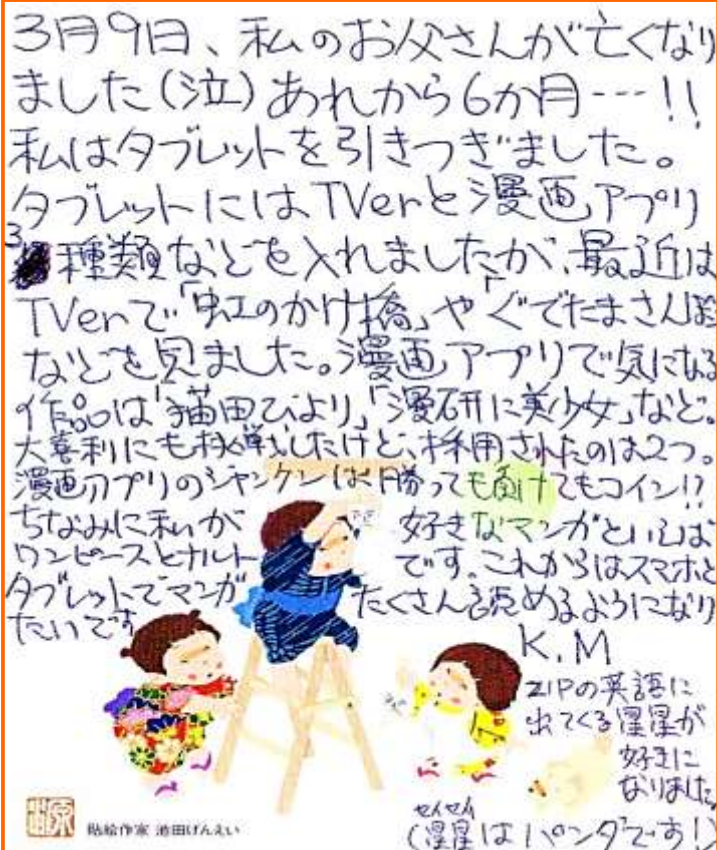 3月9日、私のお父さんが亡くなり
ました(泣)あれから6か月---!!
私はタブレットを引きつぎました。
タブレットにはTVerと漫画アプリ
3種類などを入れましたが、最近は
TVerで「虹のかけ橋」や「ぐでたまさんぽ
などを見ました。漫画アプリで気になる
作品は「猫田びより」「漫研に美少女」など。
大喜利にも挑戦したけど、採用されたのは2つ。
漫画アプリのジャンケンは勝っても負けてもコイン!?
ちなみに私が好きなマンガといえば
ワンピースとナルトです。これからはスマホと
タブレットでマンガたくさん読めるようになり
たいです
K.M
ZIPの英語に
出てくる星星が
好きに
なりました。
せいせい
(星星はパンダです!)
貼絵作家 池田げんえい